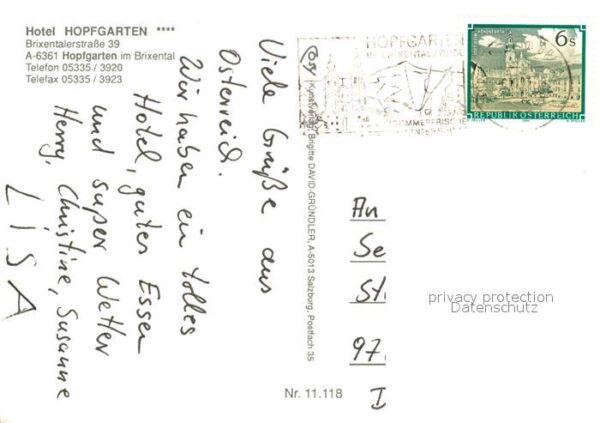 Hotel HOPFGARTEN ****
Brixentalerstraße 39
A-6361 Hopfgarten im Brixental
Telefon 05335 / 3920
Telefax 05335 / 3923
Viele Grüße aus
Österreich.
Wir haben ein tolles
Hotel, gutes Essen
und super Wetter
Henry, Christine, Susanne
LISA
Kunstverlag Brigitte DAVID-GRÜNDLER, A-5013 Salzburg, Postfach 35
Nr. 11.118
HOPFGARTEN
SOMMERFRISCHE
6 S
REPUBLIK ÖSTERREICH
An
Se
St
97
D
privacy protection
Datenschutz